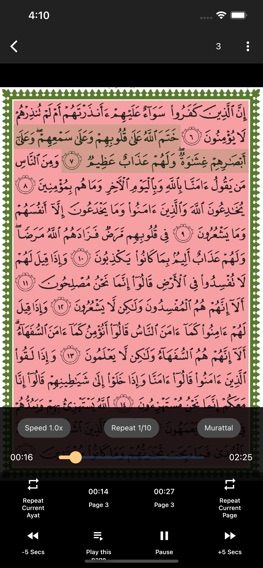 4:10
3
إِنَّ ٱلَّذِينَ كَفَرُوا۟ سَوَآءٌ عَلَيْهِمْ ءَأَنذَرْتَهُمْ أَمْ لَمْ تُنذِرْهُمْ
لَا يُؤْمِنُونَ ٦ خَتَمَ ٱللَّهُ عَلَىٰ قُلُوبِهِمْ وَعَلَىٰ سَمْعِهِمْ ۖ وَعَلَىٰٓ
أَبْصَٰرِهِمْ غِشَٰوَةٌ ۖ وَلَهُمْ عَذَابٌ عَظِيمٌ ٧ وَمِنَ ٱلنَّاسِ
مَن يَقُولُ ءَامَنَّا بِٱللَّهِ وَبِٱلْيَوْمِ ٱلْءَاخِرِ وَمَا هُم بِمُؤْمِنِينَ ٨
يُخَٰدِعُونَ ٱللَّهَ وَٱلَّذِينَ ءَامَنُوا۟ وَمَا يَخْدَعُونَ إِلَّآ أَنفُسَهُمْ
وَمَا يَشْعُرُونَ ٩ فِى قُلُوبِهِم مَّرَضٌ فَزَادَهُمُ ٱللَّهُ مَرَضًا ۖ
وَلَهُمْ عَذَابٌ أَلِيمٌۢ بِمَا كَانُوا۟ يَكْذِبُونَ ١٠ وَإِذَا قِيلَ لَهُمْ
لَا تُفْسِدُوا۟ فِى ٱلْأَرْضِ قَالُوٓا۟ إِنَّمَا نَحْنُ مُصْلِحُونَ ١١
أَلَآ إِنَّهُمْ هُمُ ٱلْمُفْسِدُونَ وَلَٰكِن لَّا يَشْعُرُونَ ١٢ وَإِذَا قِيلَ
لَهُمْ ءَامِنُوا۟ كَمَآ ءَامَنَ ٱلنَّاسُ قَالُوٓا۟ أَنُؤْمِنُ كَمَآ ءَامَنَ ٱلسُّفَهَآءُ ۗ
أَلَآ إِنَّهُمْ هُمُ ٱلسُّفَهَآءُ وَلَٰكِن لَّا يَعْلَمُونَ ١٣ وَإِذَا لَقُوا۟
ٱلَّذِينَ ءَامَنُوا۟ قَالُوٓا۟ ءَامَنَّا وَإِذَا خَلَوْا۟ إِلَىٰ شَيَٰطِينِهِمْ قَالُوٓا۟ إِنَّا
مَعَكُمْ إِنَّمَا نَحْنُ مُسْتَهْزِءُونَ ١٤
Speed 1.0x Repeat 1/10 Murattal
00:16 02:25
Repeat Current Ayat 00:14 Page 3 00:27 Page 3 Repeat Current Page
-5 Secs Play this page Pause +5 Secs